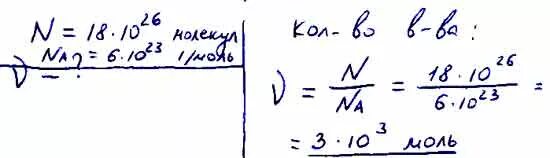 N = 18·10²⁶ молекул
NA = 6·10²³ 1/моль
ν – ?
Кол-во в-ва:
ν = N/NA = 18·10²⁶/6·10²³ =
= 3·10³ моль